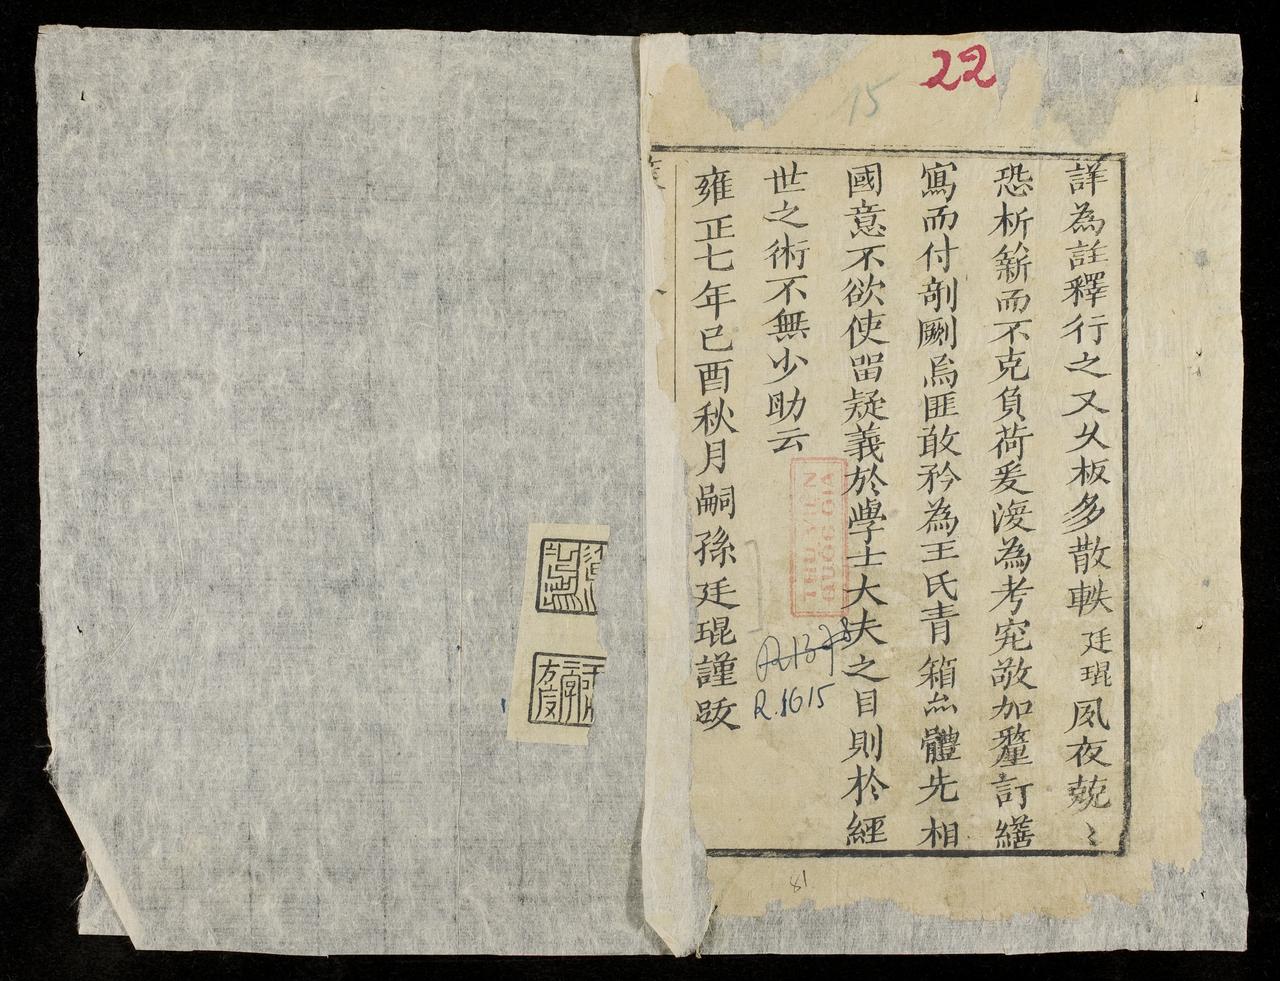 22
15
詳為註釋行之又久板多散軼廷琨夙夜兢〻
恐析薪而不克負荷爰濅為考究敬加釐訂繕
寫而付剞劂焉匪敢矜為王氏青箱亦體先相
國意不欲使留疑義於學士大夫之目則於經
世之術不無少助云
雍正七年己酉秋月嗣孫廷琨謹跋
THƯ VIỆN
QUỐC GIA
R.1615
81